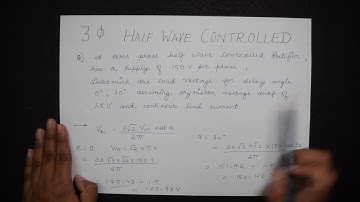 3Ф HALF WAVE CONTROLLED
Q) A three phase half wave controlled Rectifier,
has a supply of 150 V per phase.
Determine the load voltage for delay angle
0°, 30° assuming thyristor voltage drop of
1.5 V and continuous load current
→ Vdc = 3√3 Vm cos α / 2π
α = 0 Vm = √2 × 150
= 3 × √3 × √2 × 150.1 / 2π
= 175.43 - 1.5
= 173.93 V
α = 30°
= 3 × √3 × √2 × 150 cos 30 / 2π
= 151.92 - 1.5
= 150.42 V